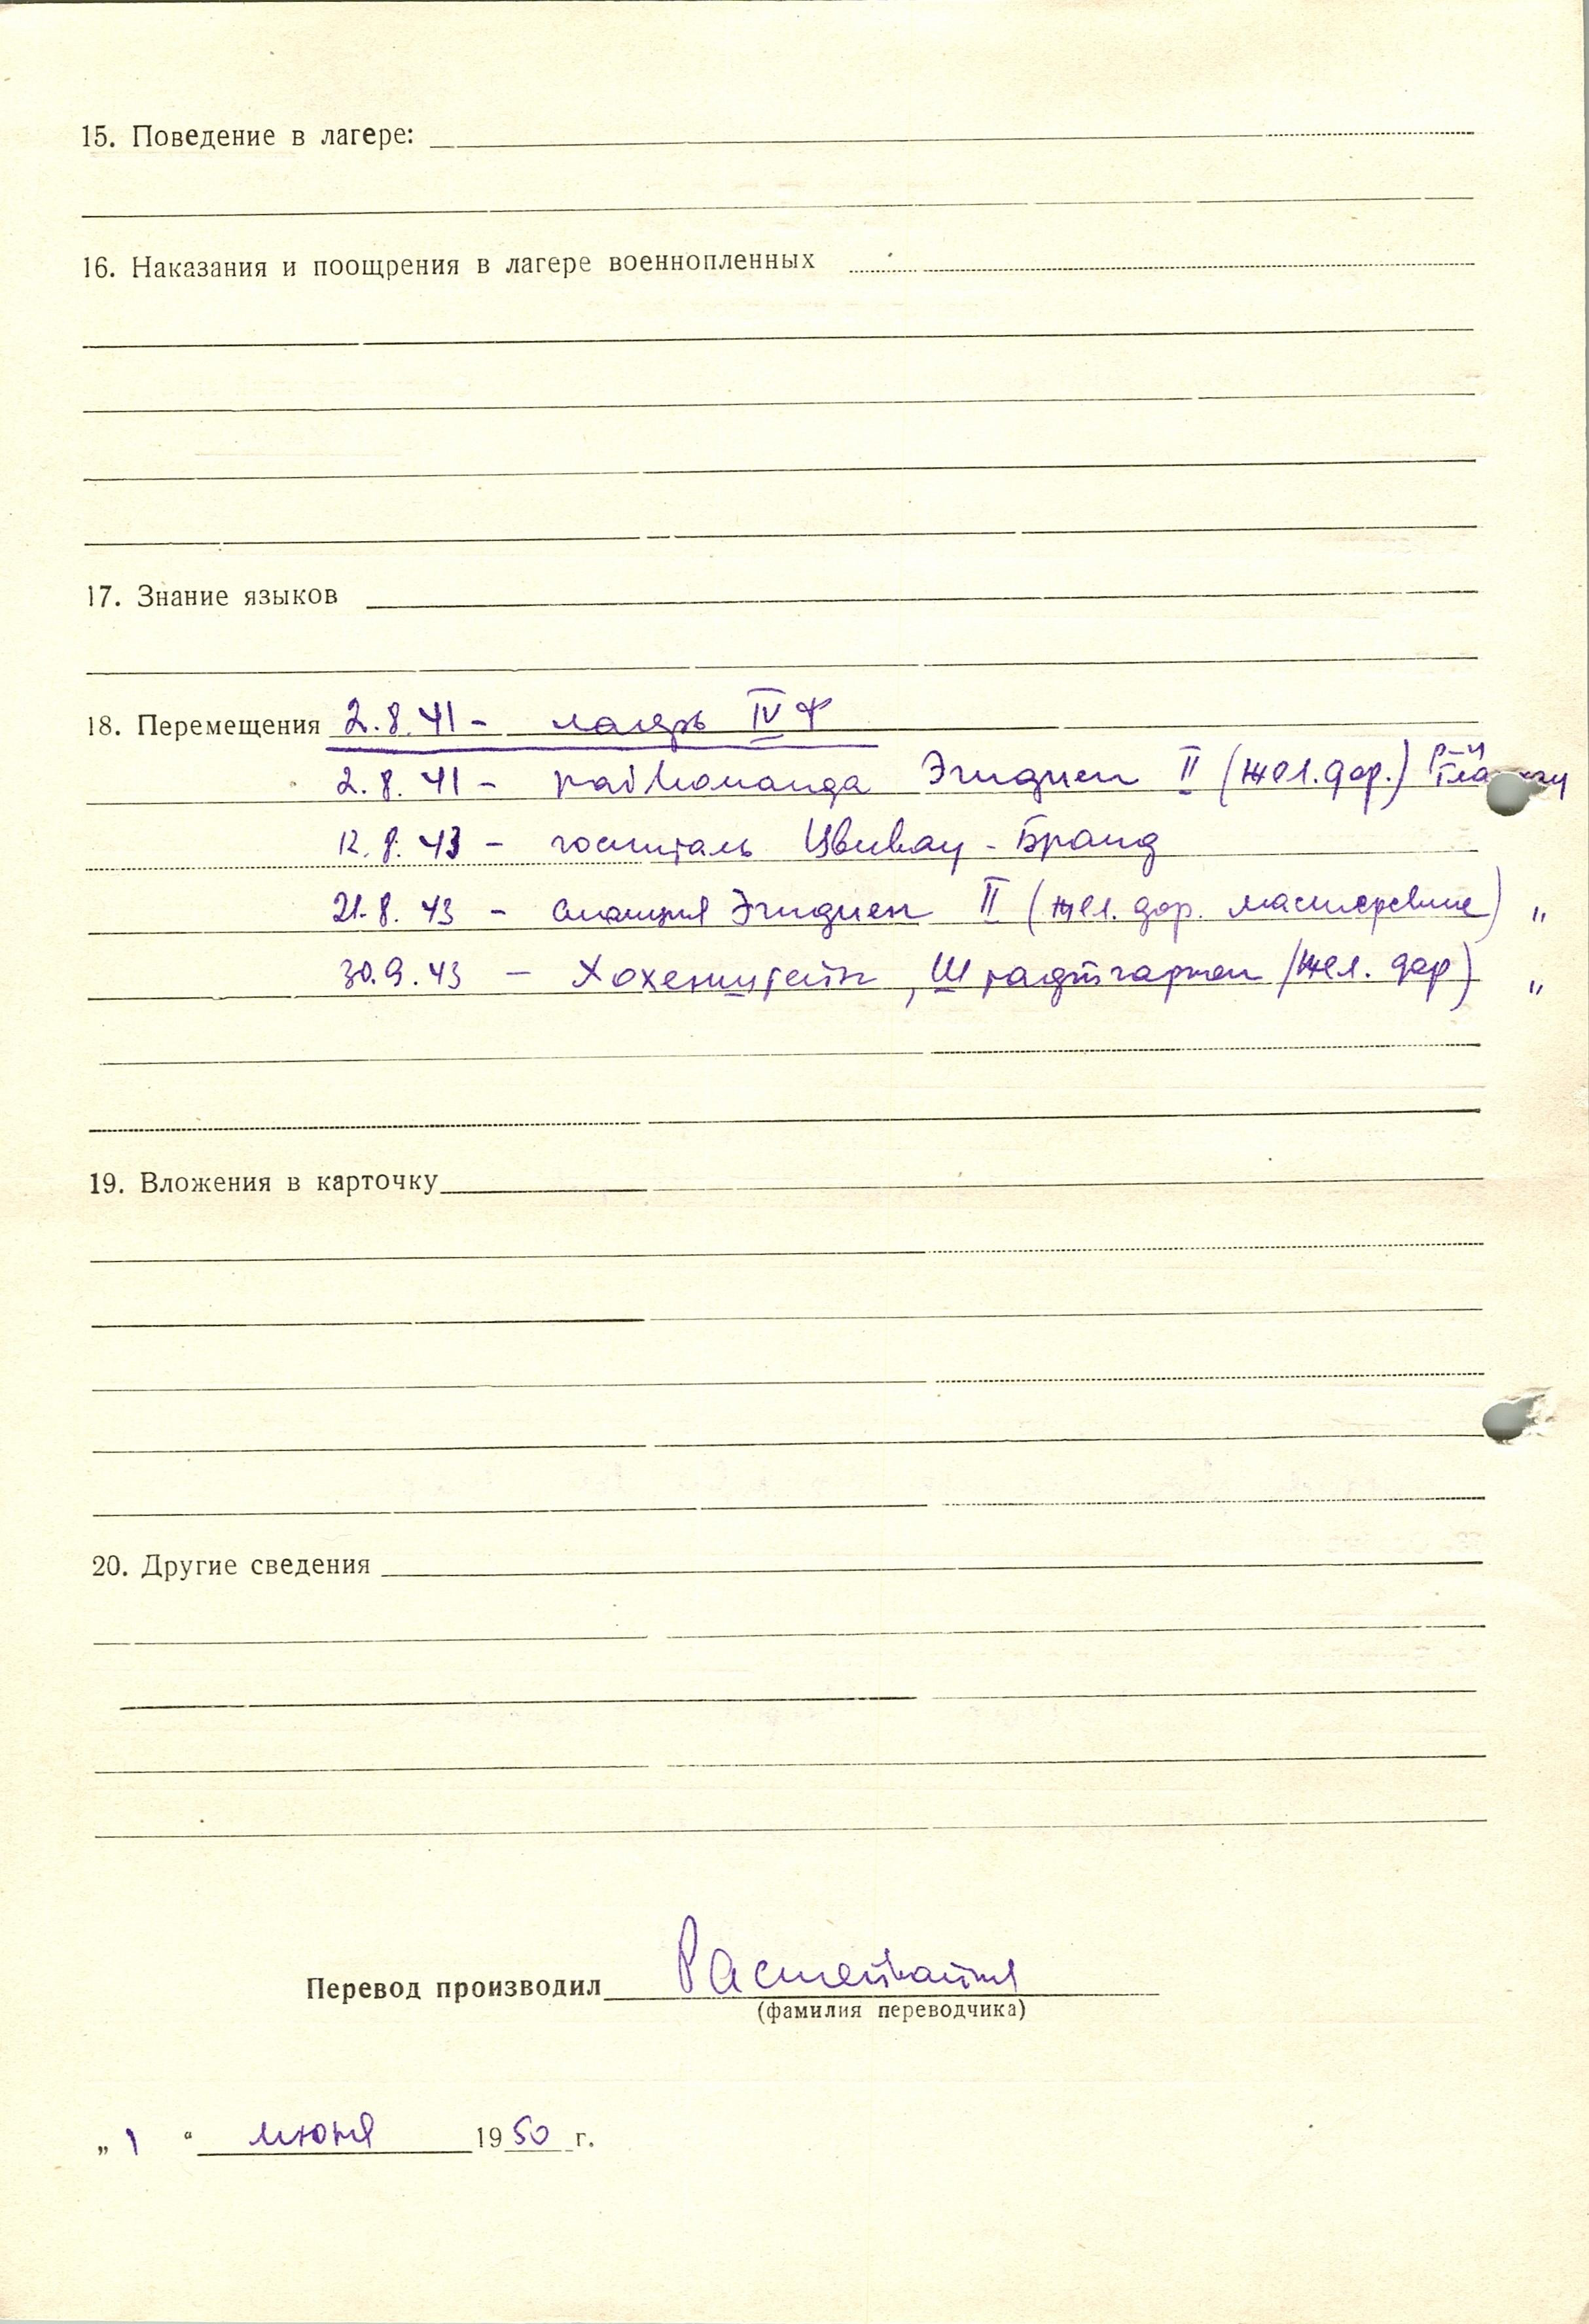 15. Поведение в лагере:
16. Наказания и поощрения в лагере военнопленных
17. Знание языков
18. Перемещения 2.8.41 - лагерь IV Ф
2.8.41 - рабкоманда Эгидиен II (жел.дор.) р-н
12.8.43 - госпиталь Цвикау - Бранд
21.8.43 - станция Эгидиен II (жел. дор. мастерские) "
30.9.43 - Хохенштейн, Штадтгартен (жел. дор) "
19. Вложения в карточку
20. Другие сведения
Перевод производил
(фамилия переводчика)
„1“ июня 1950 г.